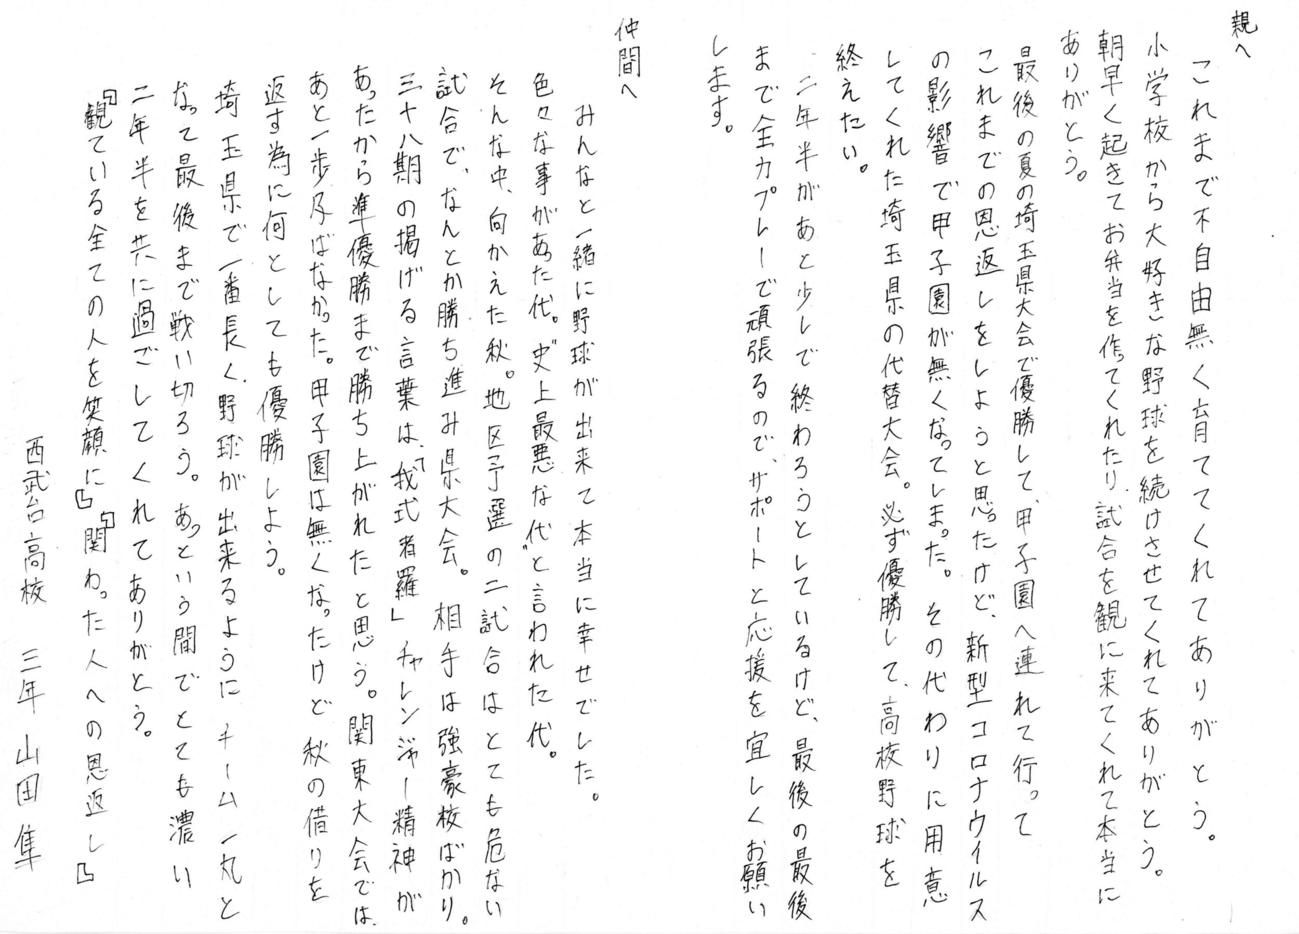 親へ
これまで不自由無く育ててくれてありがとう。
小学校から大好きな野球を続けさせてくれてありがとう。
朝早く起きてお弁当を作ってくれたり、試合を観に来てくれて本当に
ありがとう。
最後の夏の埼玉県大会で優勝して、甲子園へ連れて行って
これまでの恩返しをしようと思ったけど、新型コロナウイルス
の影響で甲子園が無くなってしまった。その代わりに用意
してくれた埼玉県の代替大会。必ず優勝して、高校野球を
終えたい。
二年半があと少しで終わろうとしているけど、最後の最後
まで全力プレーで頑張るので、サポートと応援を宜しくお願い
します。
仲間へ
みんなと一緒に野球が出来て本当に幸せでした。
色々な事があった代。"史上最悪な代"と言われた代。
そんな中、向かえた秋。地区予選の二試合はとても危ない
試合で、なんとか勝ち進み県大会。相手は強豪校ばかり。
三十八期の掲げる言葉は、「我武者羅」チャレンジャー精神が
あったから準優勝まで勝ち上がれたと思う。関東大会では、
あと一歩及ばなかった。甲子園は無くなったけど秋の借りを
返す為に何としても優勝しよう。
埼玉県で一番長く、野球が出来るようにチーム一丸と
なって最後まで戦い切ろう。あっという間でとても濃い
二年半を共に過ごしてくれてありがとう。
『観ている全ての人を笑顔に』『関わった人への恩返し』
西武台高校 三年 山田隼